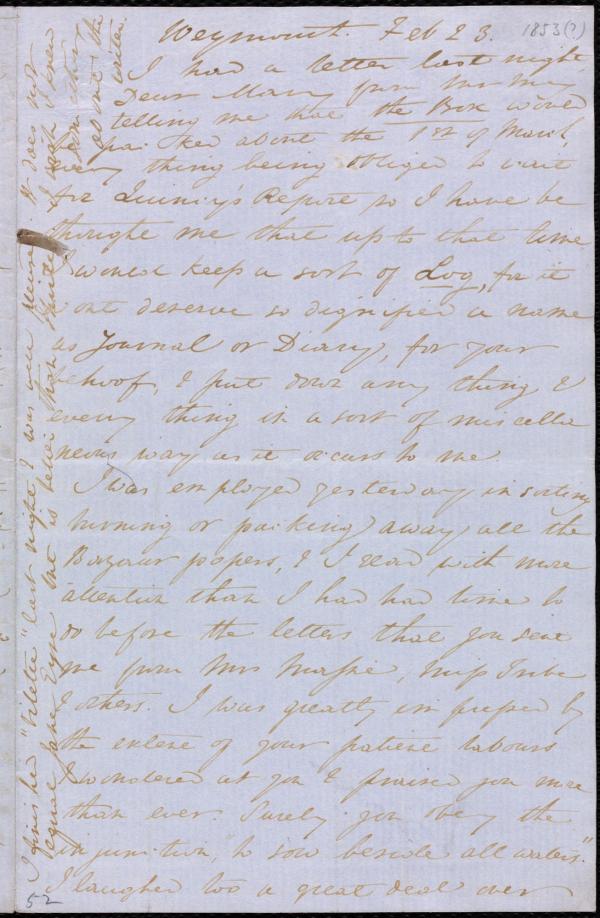 Weymouth. Feb 23. 1853(?)
I had a letter last night,
Dear Mary from Mrs May
telling me that the Box would
be packed about the 1st of March,
every thing being obliged to wait
for Quincy's Report so I have be
thought me that up to that time
I would keep a sort of Log, for it
wont deserve so dignified a name
as Journal or Diary, for your
behoof, & put down any thing &
every thing in a sort of miscella
neous way as it occurs to me.
I was employed yesterday in sorting
burning or packing away all the
Bazaar papers, & I read with more
attention than I had had time to
do before the letters that you sent
me from Mrs Massie, Miss Tribe
& others. I was greatly impressed by
the extent of your patient labours
I wondered at you & praised you more
than ever. Surely you obey the
injunction, "to sow beside all waters."
I laughed too a great deal over
52
I finished "Villette" last night. I was very It does not
equal Jane Eyre one is better than
about the
writer.